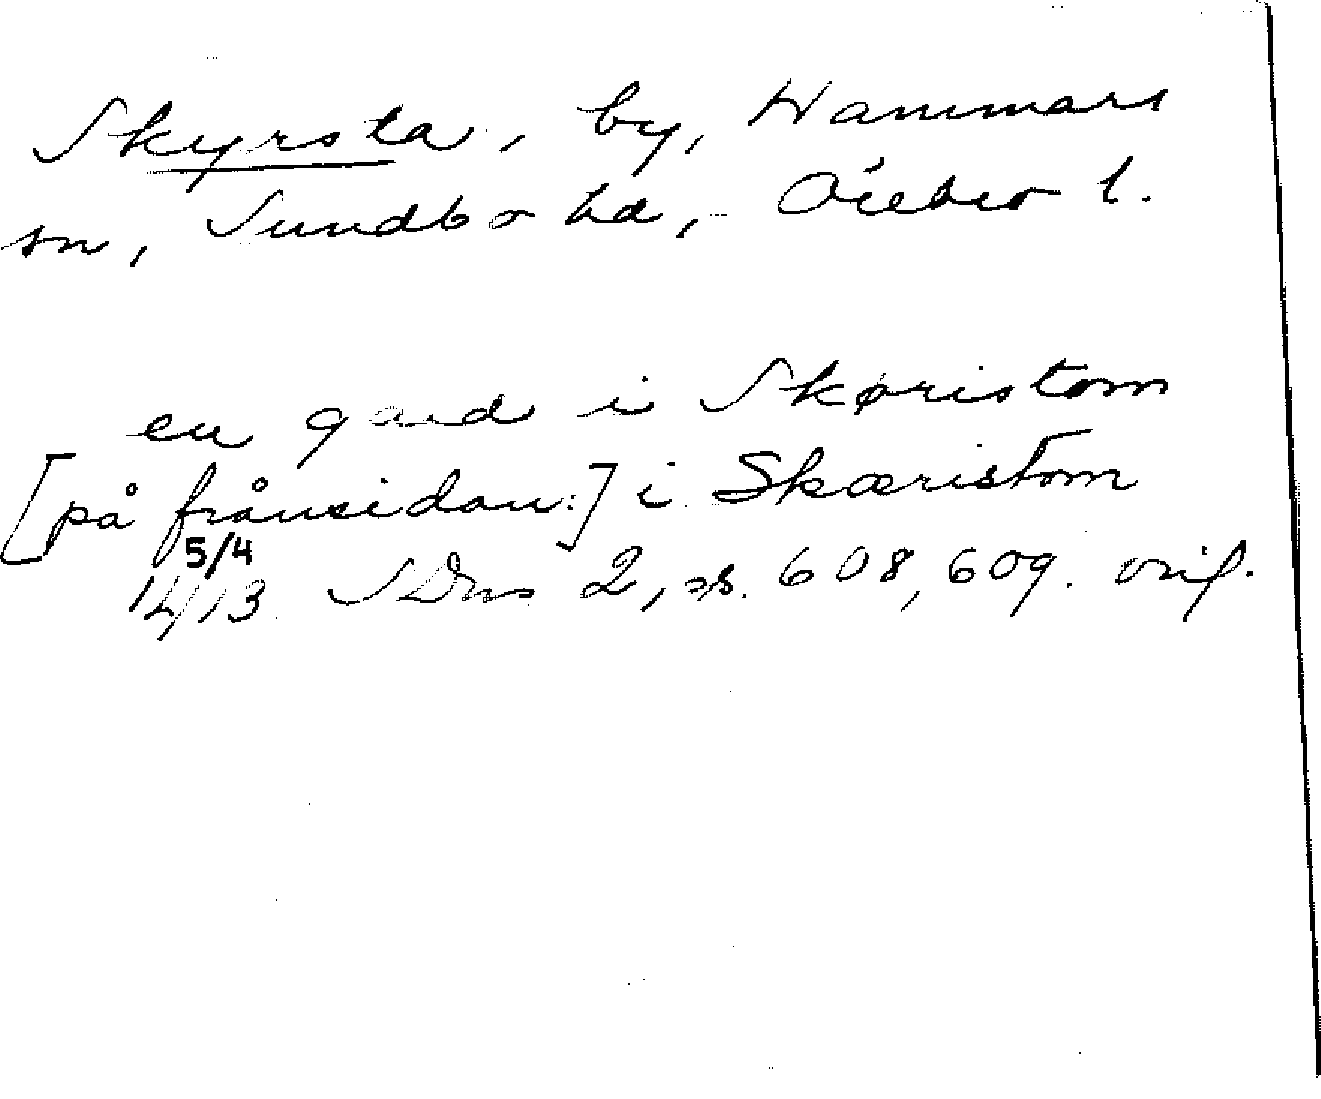 Skyrsta, by, Hammars
sn, Sundbo hd, Örebro l.
en gard i Skøristom
[på frånsidan:] i Skæristom
5/4
14/13 SDns 2, ss. 608, 609. orig.